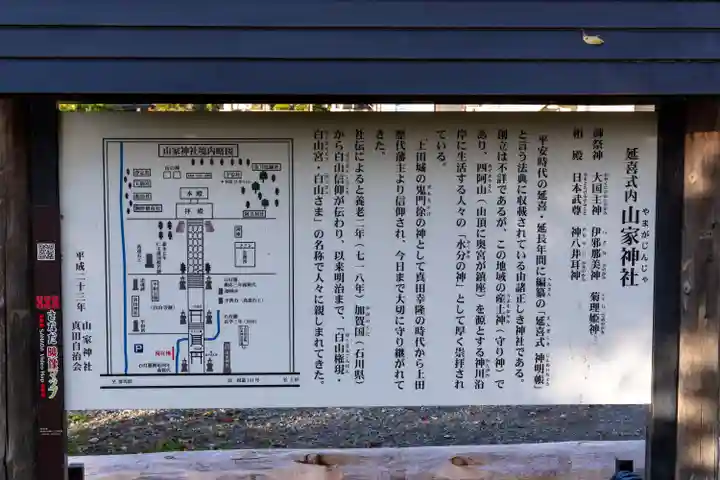 延喜式内 山家神社
やまがじんじゃ
御祭神 大国主神 伊邪那美神 菊理姫神
相殿 日本武尊 神八井耳神
平安時代の延喜・延長年間に編纂の「延喜式 神明帳」
と言う法典に収載されている由緒正しき神社である。
創立は不詳であるが、この地域の産土神(守り神)で
あり、四阿山(山頂に奥宮が鎮座)を源とする神川沿
岸に生活する人々の「水分の神」として厚く崇拝され
ている。
上田城の鬼門除の神として真田幸隆の時代から上田
歴代藩主より信仰され、今日まで大切に守り継がれて
きた。
社伝によると養老二年(七一八年)加賀国(石川県)
から白山信仰が伝わり、以来明治まで、「白山権現・
白山宮・白山さま」の名称で人々に親しまれてきた。
平成二十三年
山家神社
真田自治会
山家神社境内略図
本殿
拝殿
現在地
P
さなだ映像マップ
SANADA Video Map